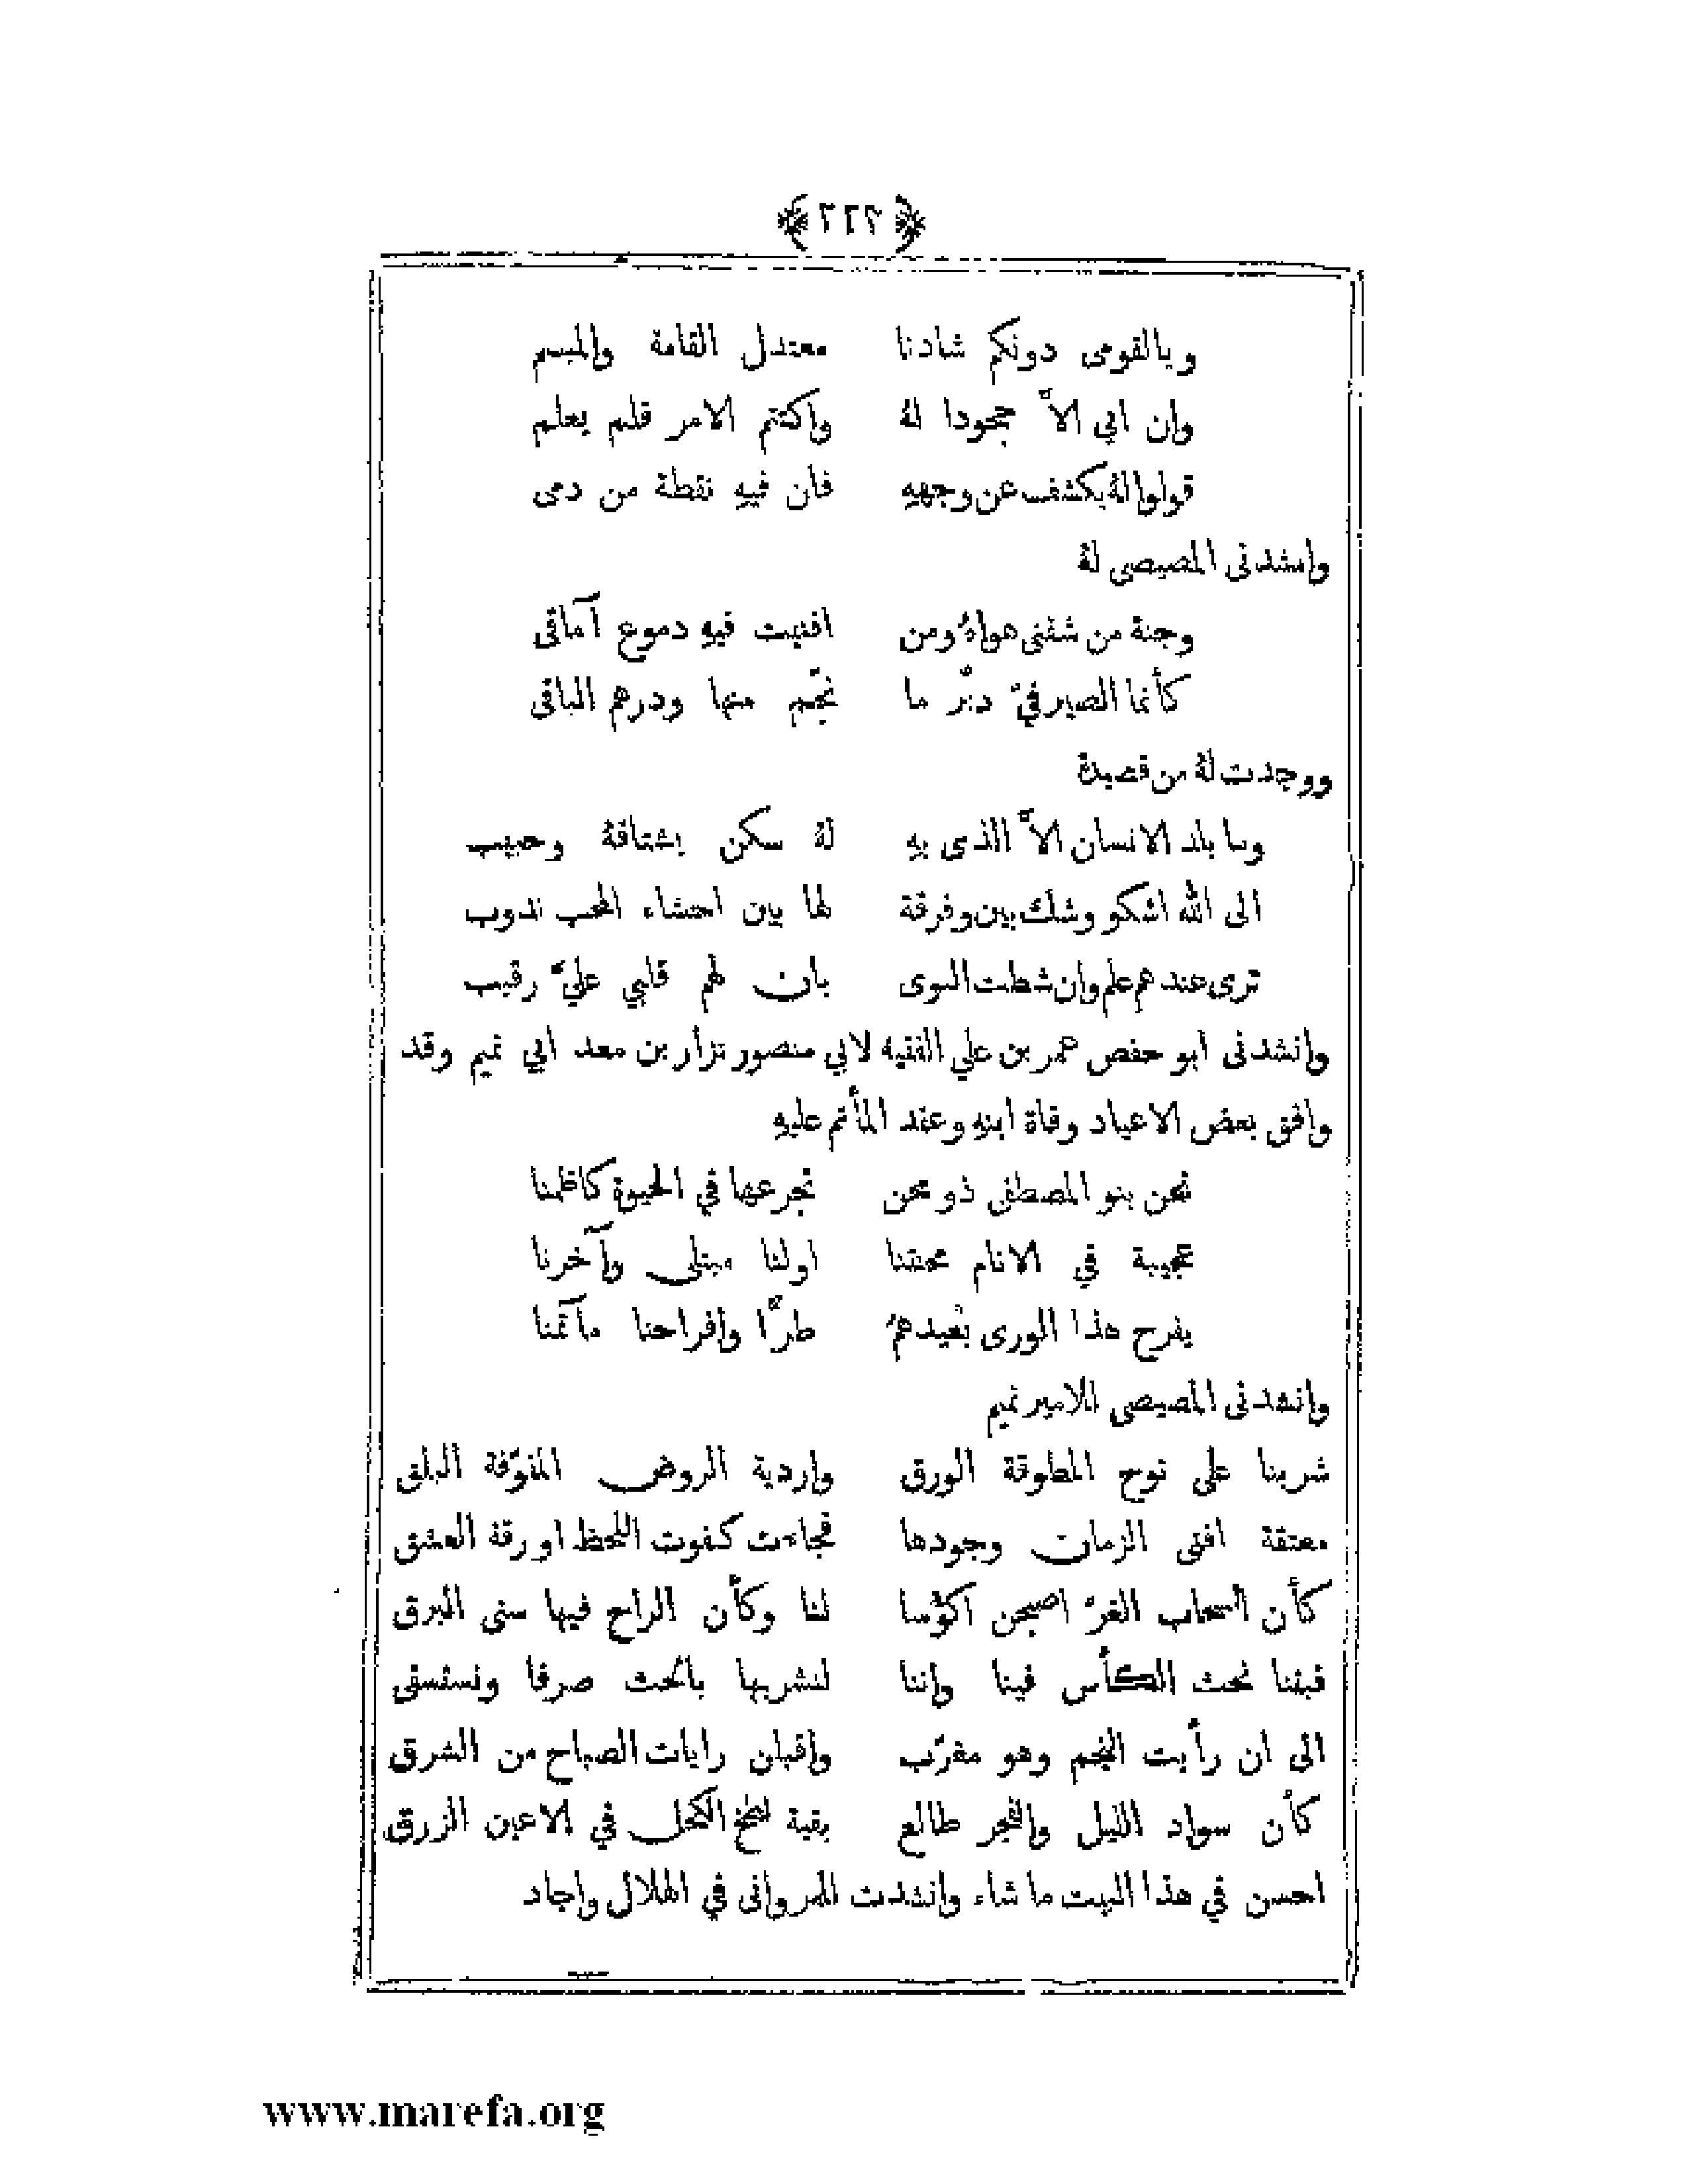 ﴿ ٢٦٢ ﴾
ويا لقومى دونكم شادنا معتدل القامة والمبسم
وان ابي الاّ جحودا لهُ واكتتم الامر فلم يعلم
قولوا لهُ يكشف عن وجههِ فان فيهِ نقطة من دمى
وانشدنى المصيصى لهُ
وجنة من شفنى هواهُ ومن افنيت فيهِ دموع آماقى
كأنما الصيرفيّ دبّر ما نجّم منها ودرهم الباقى
ووجدت لهُ من قصيدة
وما بلد الانسان الاّ الذى بهِ لهُ سكن يشتاقهُ وحبيب
الى الله اشكو وشك بين وفرقة لها بين احشاء المحب ندوب
ترى عندهم علم وان شطت النوى بان لهم قلبي عليّ رقيب
وانشدنى ابو حفص عمر بن علي الفقيه لابي منصور نزار بن معد ابي تميم وقد
وافق بعض الاعياد وفاة ابنهِ وعقد المأتم عليهِ
نحن بنو المصطفى ذو محن تجرعها في الحيوة كاظمنا
عجيبة في الانام محنتنا اولنا مبتلى وآخرنا
يفرح هذا الورى بعيدهم طرّا وافراحنا مآتمنا
وانشدنى المصيصى للامير تميم
شربنا على نوح المطوقة الورق واردية الروض المفوّفة البلق
معتقة افنى الزمان وجودها فجاءت كفوت اللحظ او رقة العشق
كأن السحاب الغرّ اصبحن اكؤسا لنا وكأن الراح فيها سنى البرق
فبتنا نحث الكأس فينا واننا لنشربها بالحث صرفا ونستسقى
الى ان رأيت النجم وهو مغرّب واقبلن رايات الصباح من الشرق
كأن سواد الليل والفجر طالع بقية لطخ الكحل في الاعين الزرق
احسن في هذا البيت ما شاء وانشدت للمروانى في الهلال واجاد
www.marefa.org